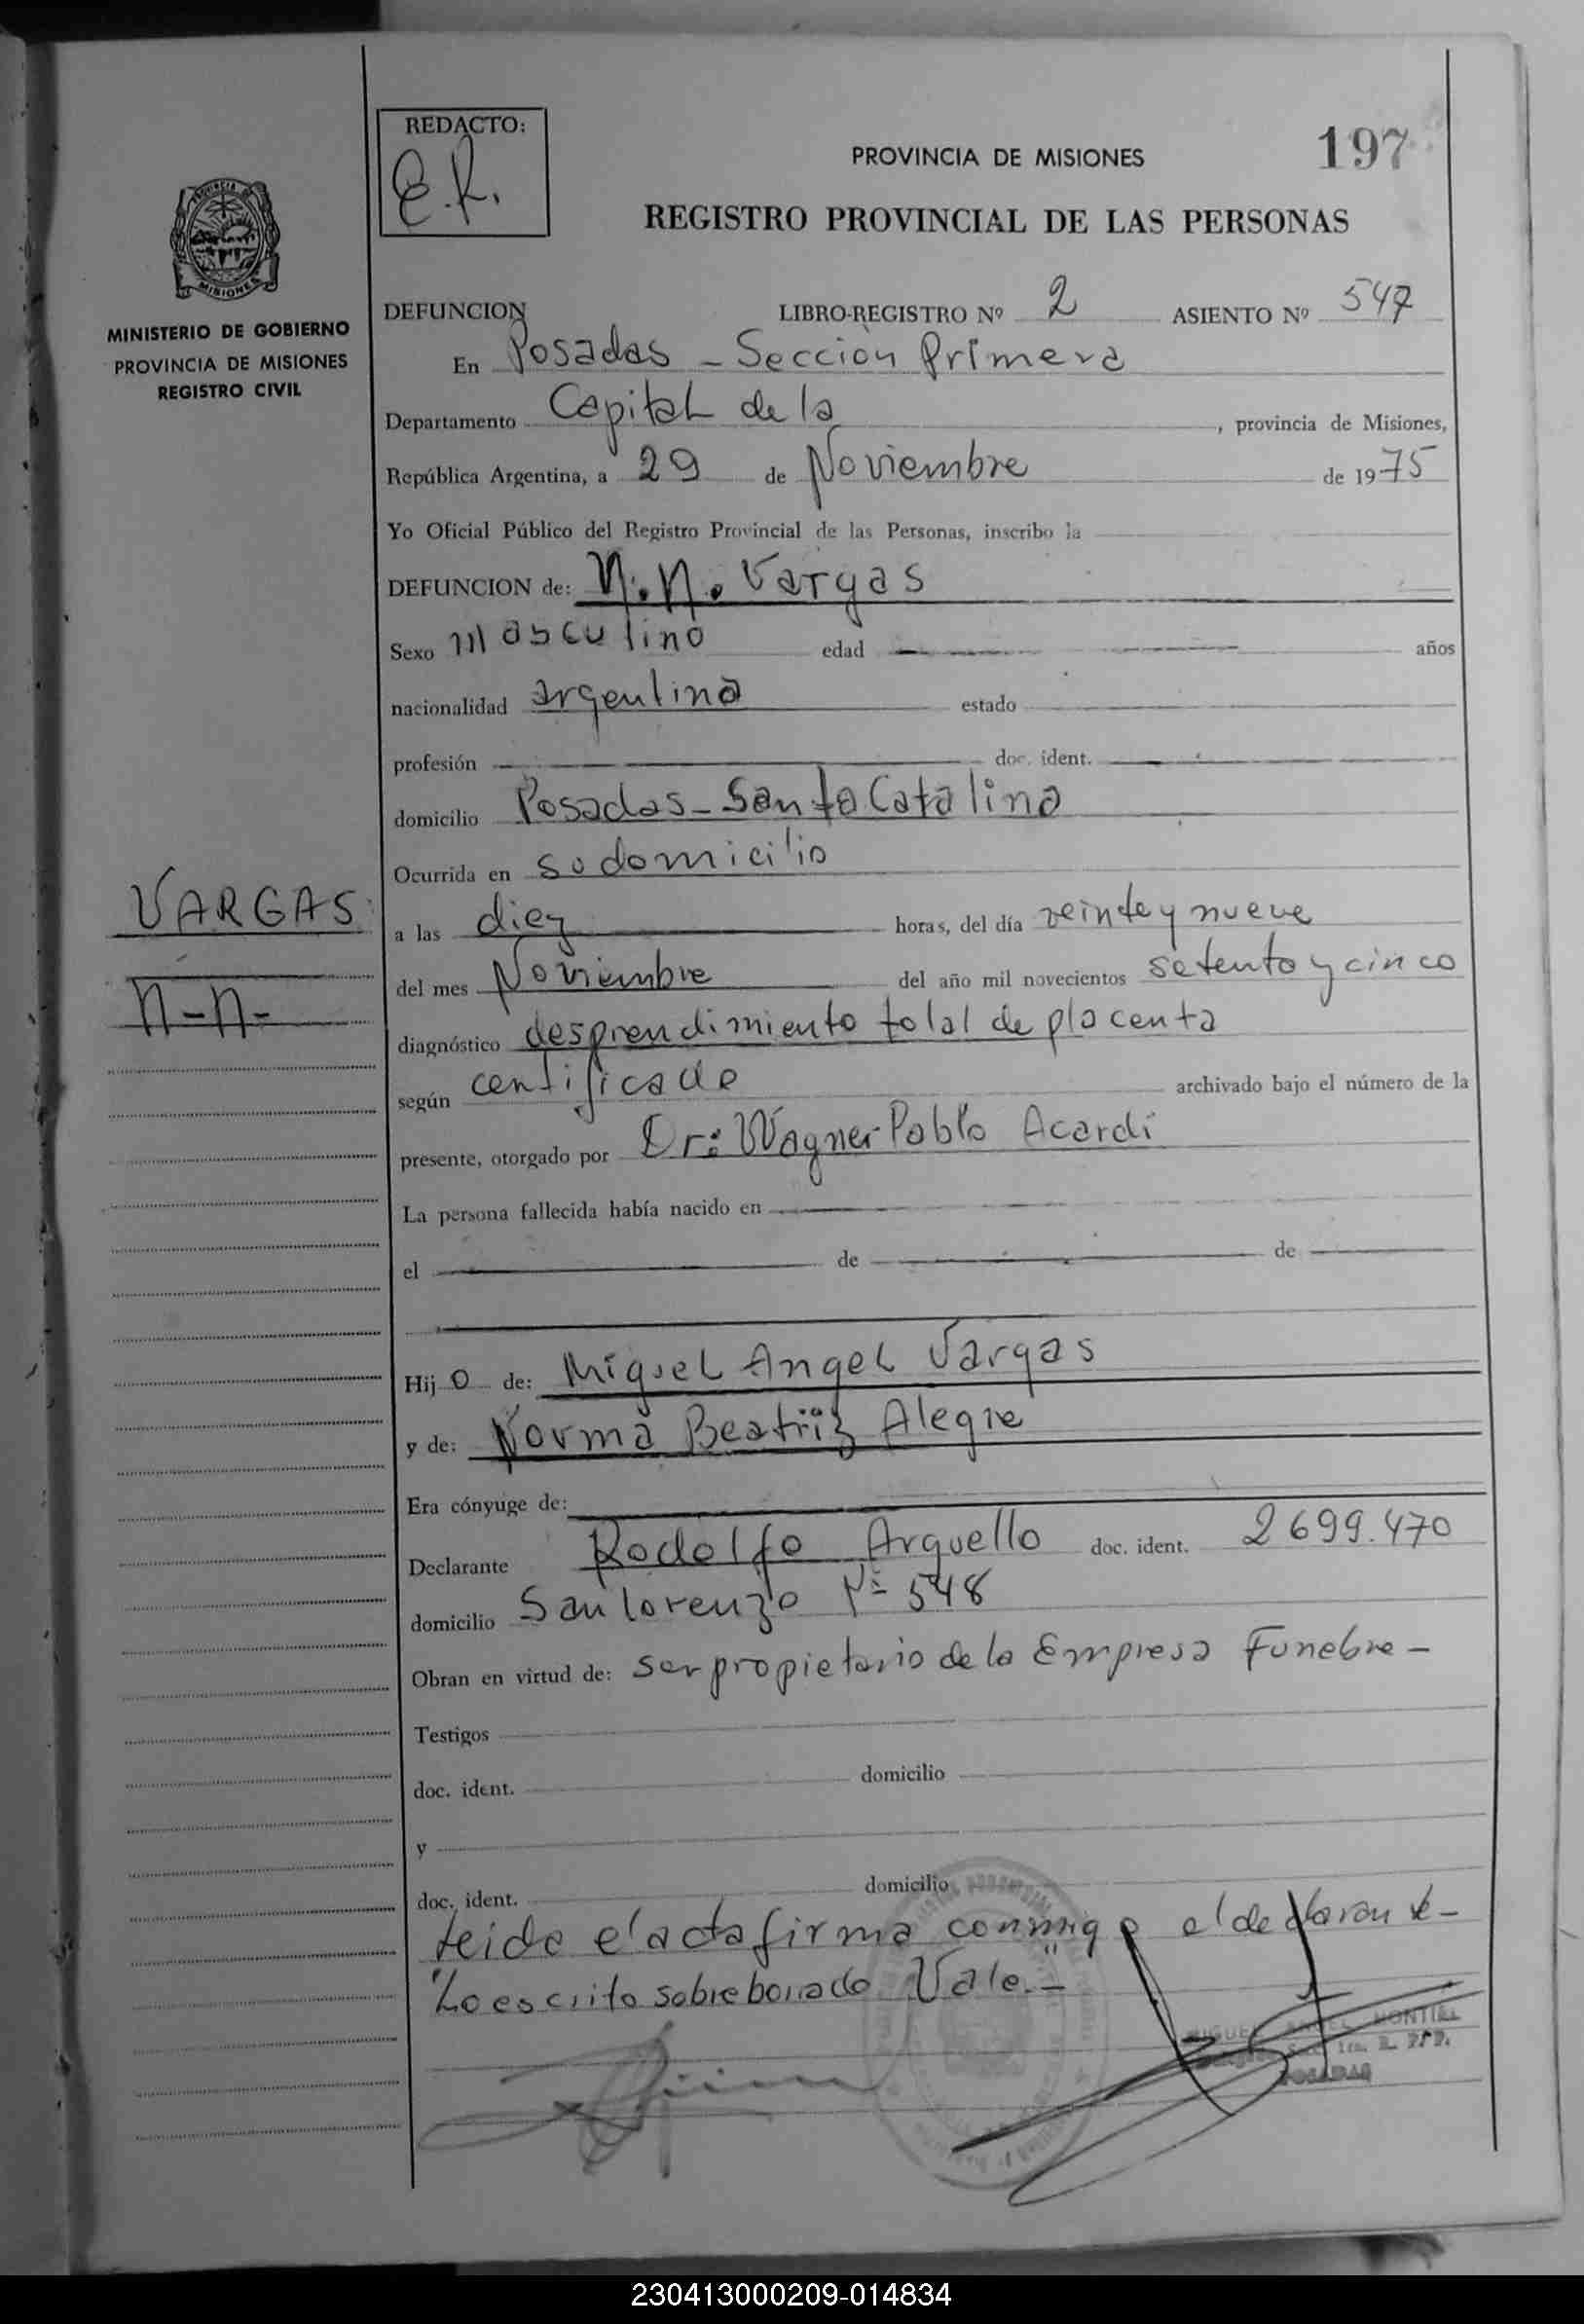 REDACTO:
E.R.
PROVINCIA DE MISIONES
197
REGISTRO PROVINCIAL DE LAS PERSONAS
MISIONES
MINISTERIO DE GOBIERNO
PROVINCIA DE MISIONES
REGISTRO CIVIL
DEFUNCION LIBRO-REGISTRO Nº 2 ASIENTO Nº 547
En Posadas - Sección Primera
Departamento Capital de la, provincia de Misiones,
República Argentina, a 29 de Noviembre de 1975
Yo Oficial Público del Registro Provincial de las Personas, inscribo la
DEFUNCION de: N.N. Vargas
Sexo Masculino edad años
nacionalidad argentina estado
profesión doc. ident.
domicilio Posadas - Santa Catalina
Ocurrida en su domicilio
VARGAS
N-N-
a las diez horas, del día veinte y nueve
del mes Noviembre del año mil novecientos setenta y cinco
diagnóstico desprendimiento total de placenta
según certificado archivado bajo el número de la
presente, otorgado por Dr: Wagner Pablo Acardi
La persona fallecida había nacido en
el de de
Hijo de: Miguel Angel Vargas
y de: Norma Beatriz Alegre
Era cónyuge de:
Declarante Rodolfo Arguello doc. ident. 2699.470
domicilio San Lorenzo Nº 548
Obran en virtud de: ser propietario de la Empresa Funebre -
Testigos
doc. ident. domicilio
y
doc. ident. domicilio
Leida el acta firma conmigo el declarante -
"Lo escrito sobre borrado" Vale. -
MIGUEL ANGEL MONTIEL
POSADAS
230413000209-014834